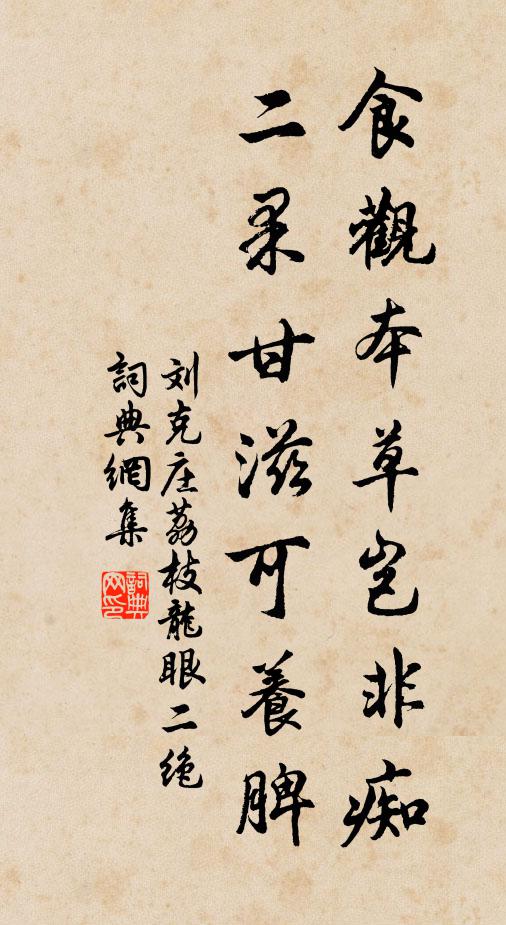 食觀本草岂非痴
二果甘滋可養脾
刘克庄荔枝龍眼二绝
詞典網集
詞典網印